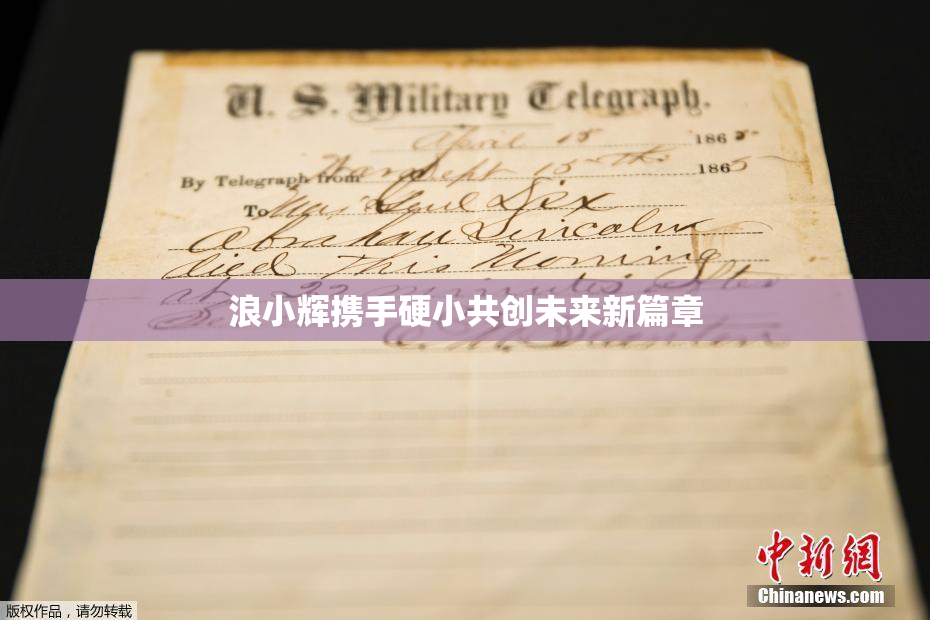 U. S. Military Telegraph.
April 15 1865
By Telegraph from War Dept 15th 1865
To Maj Genl Dix
Abraham Lincoln
died This Morning
at 22 minutes after
浪小辉携手硬小共创未来新篇章
E. M. Stanton
中新网
Chinanews.com
版权作品，请勿转载